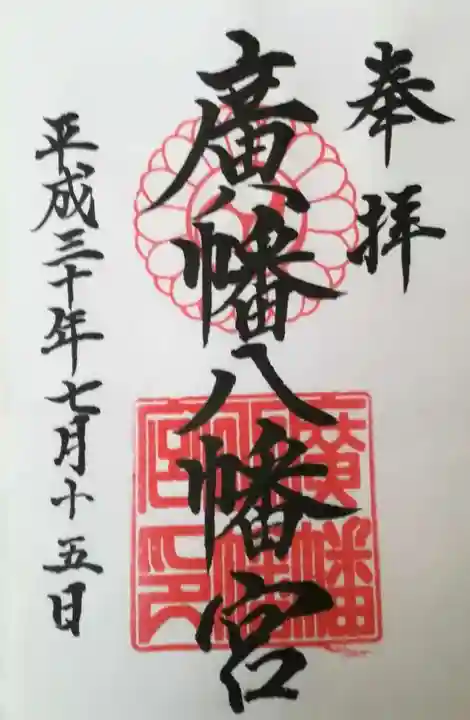 奉拝
廣幡八幡宮
廣幡八幡宮印
平成三十年七月十五日